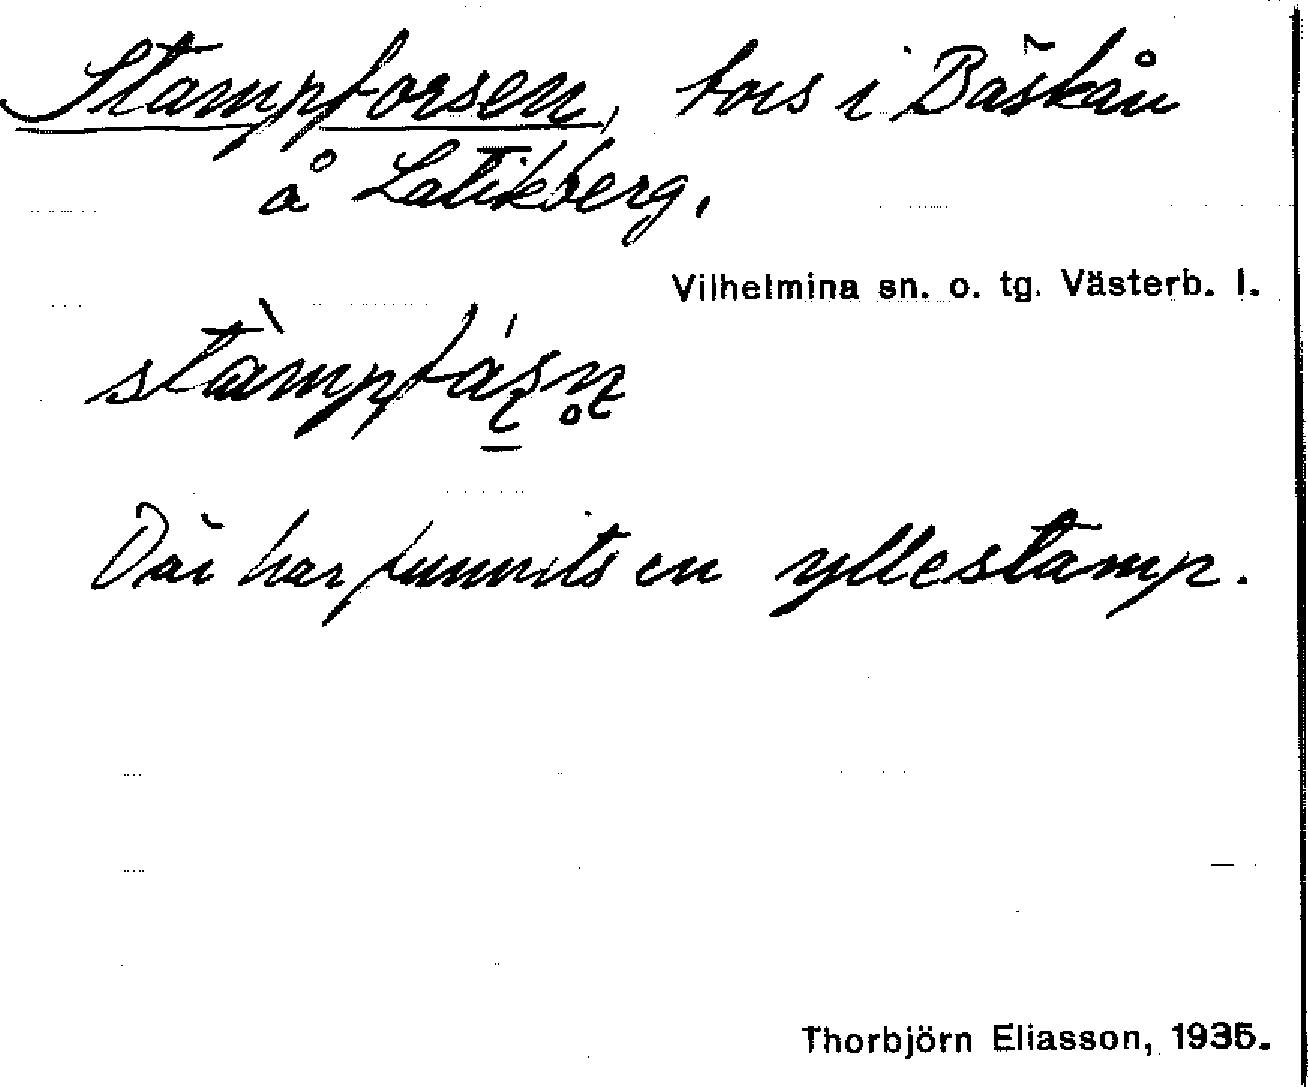 Stampforsen, fors i Bäskån
å Latikberg.
Vilhelmina sn. o. tg. Västerb. l.
Där har funnits en yllestamp.
Thorbjörn Eliasson, 1935.